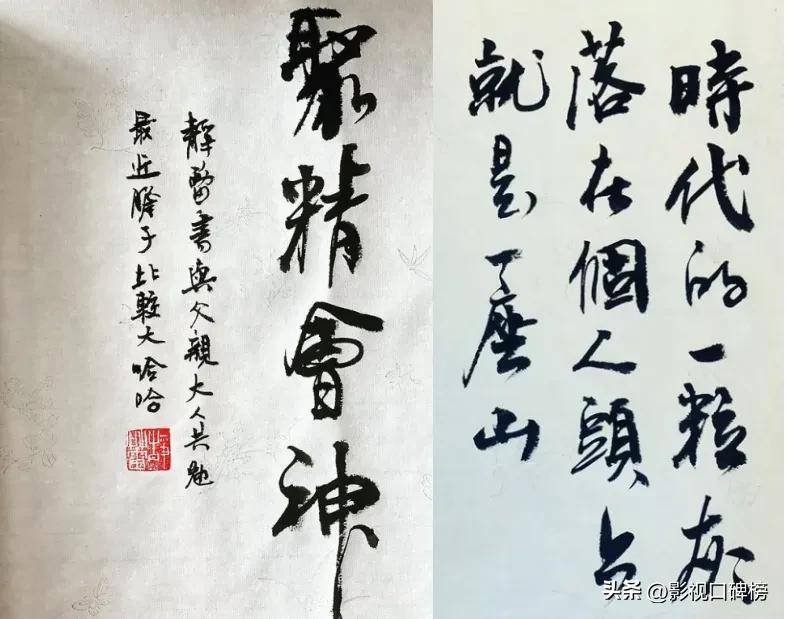 聚精會神
靜蕾書與父親大人共勉
最近膽子比較大哈哈
時代的一粒灰
落在個人頭上
就是一座山
头条 @影视口碑榜